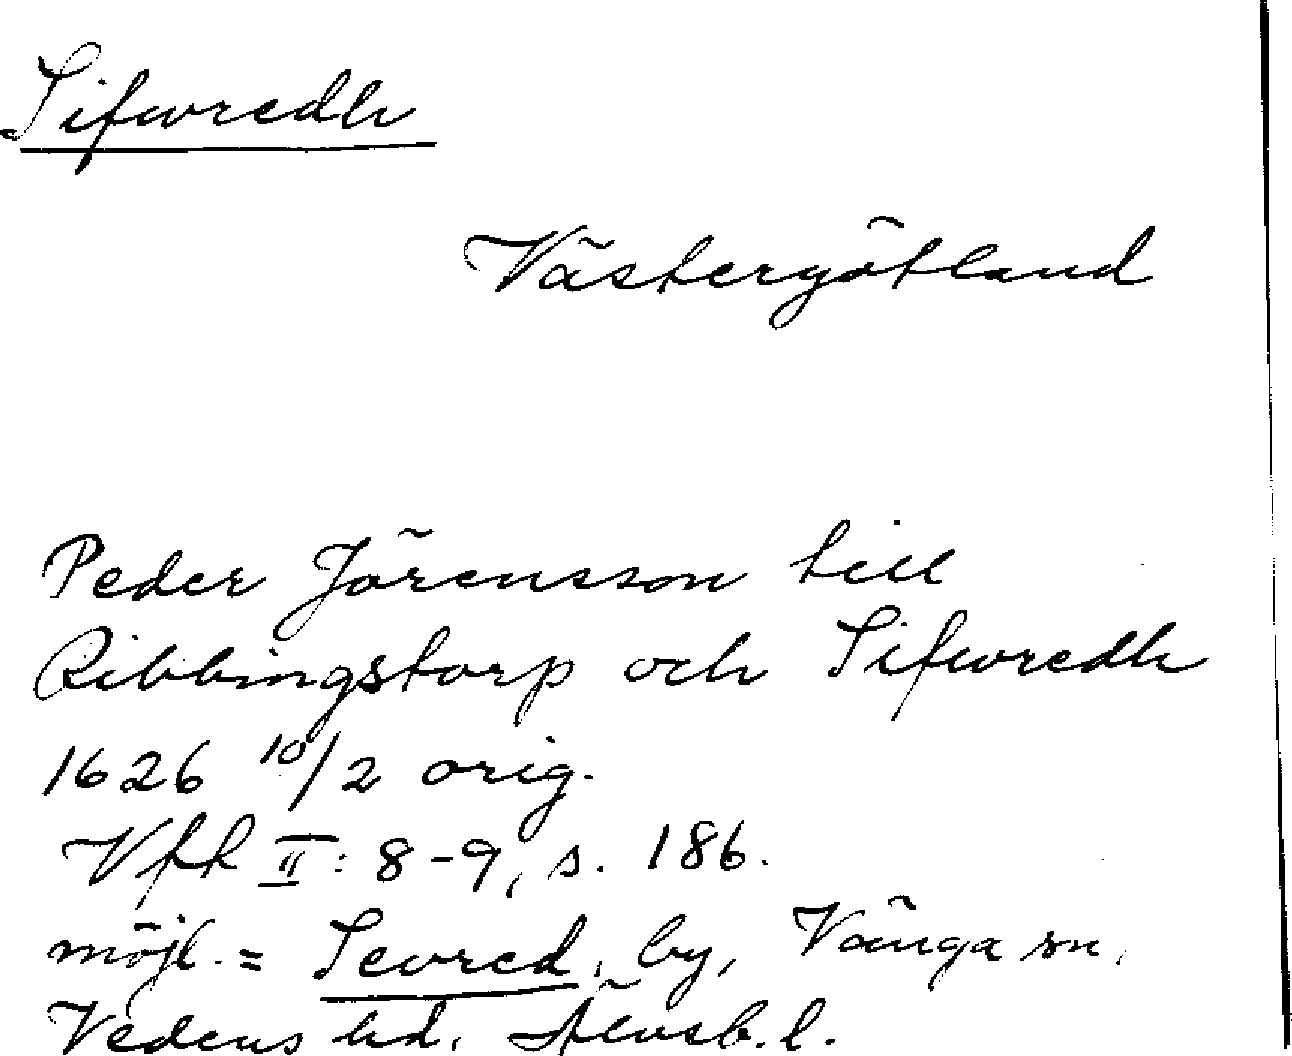 Sifwredh
Västergötland
Peder Jörensson till
Ribbingstorp och Sifwredh
1626 10/2 orig.
Vfk II: 8-9, s. 186.
möjl. = Sevred, by, Vånga sn,
Vedens hd. Älvsb. l.